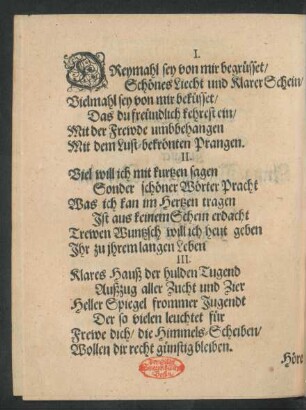 I.
DReymahl sey von mir begrüsset/
Schönes Liecht und Klarer Schein/
Vielmahl sey von mir beküsset/
Das du freündlich kehrest ein/
Mit der Frewde umbbehangen
Mit dem Lust-bekrönten Prangen.
II.
Viel will ich mit kurtzen sagen
Sonder schöner Wörter Pracht
Was ich kan im Hertzen tragen
Ist aus keinem Schein erdacht
Trewen Wuntzsch will ich heut geben
Ihr zu jhrem langen Leben
III.
Klares Hauß der hulden Tugend
Außzug aller Zucht und Zier
Heller Spiegel frommer Jugendt
Der so vielen leuchtet für
Frewe dich/ die Himmels-Scheiben/
Wollen dir recht günstig bleiben.
Höre